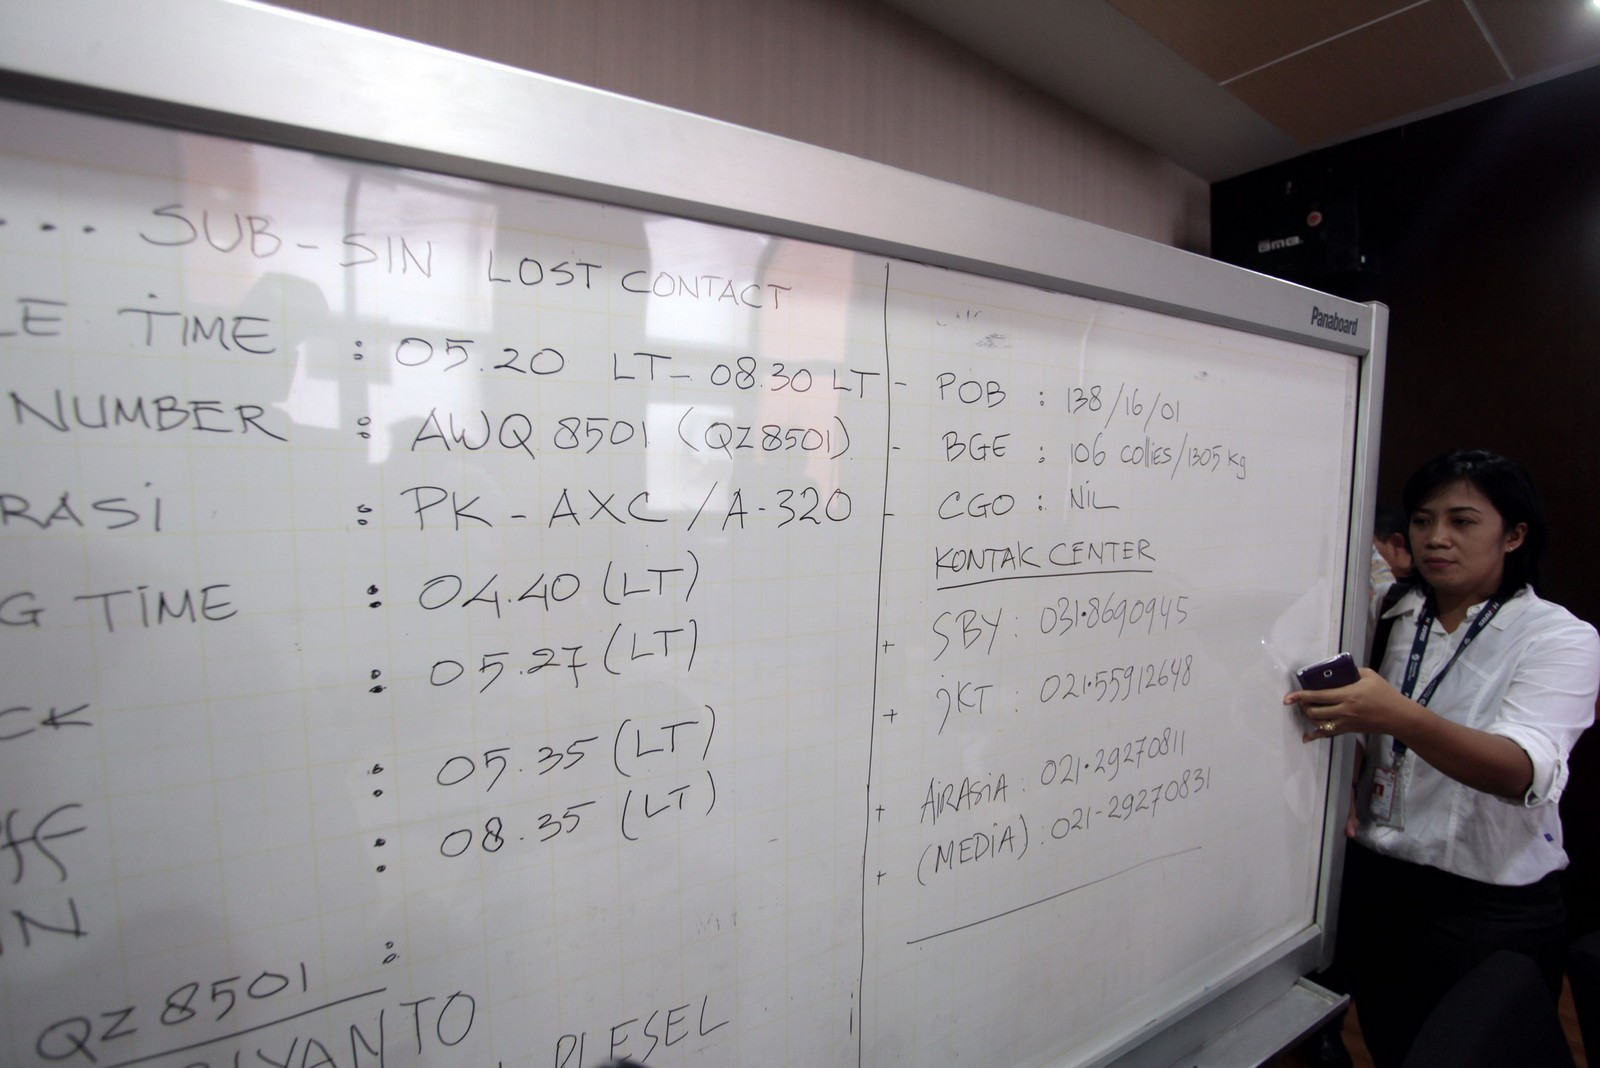 .... SUB-SIN LOST CONTACT
LE TIME : 05.20 LT - 08.30 LT
NUMBER : AWQ 8501 (QZ8501)
RASI : PK - AXC / A-320
G TIME : 04.40 (LT)
: 05.27 (LT)
CK : 05.35 (LT)
ff : 08.35 (LT)
IN :
QZ 8501
IYANTO
PLESEL
Panaboard
- POB : 138/16/01
- BGE : 106 collies/1305 kg
- CGO : NiL
KONTAK CENTER
+ SBY : 031.8690945
+ jKT : 021.55912648
+ AiRASiA : 021.29270811
+ (MEDiA) : 021-29270831